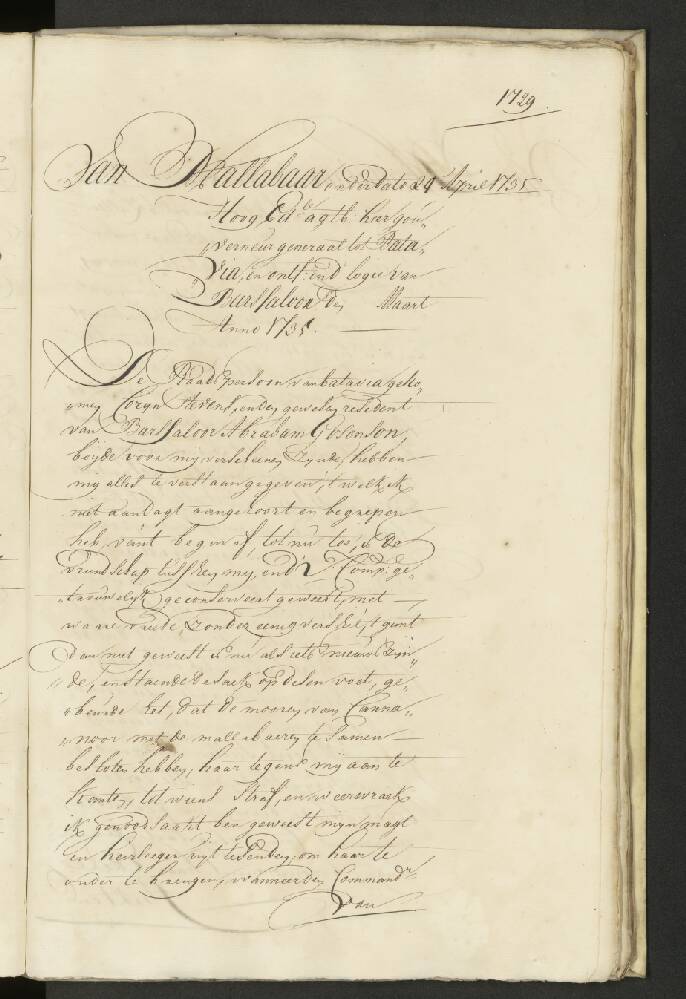 1729
Van Mallabaar onder dato 29 April 1735
Hoog Edle agtb: haar gou„
„verneur generaal tot Bata„
via, en ontf: in d' logie van
Barssaloor den Maart
Anno 1735.
De Raads persoon van batavia geko„
„men Coryn Stevens, en den gewesen resident
van Barssaloor Abraham Gosenson,
beijde voor mij verscheenen zijnde, hebben
mij alles te verstaan gegeven, 't welk ik
met aandagt aangehoort en begrepen
heb, want begin af, tot nu toe, is de
vrundschap tusschen mij, end' E Comp: ge„
„trouwelijk geconserveert geweest, met
waare vreede, zonder eenig verschil, 't gunt
dan niet geweest is nu als iets nieuws zijn„
„de, en staende de saek op desen voet, ge„
„beurde het, dat de mooren van Canna„
„noor met de mallabaeren te samen
besloten hebben, haar tegens mij aan te
kanten, tot wiens straf, en weerwraek
ik genootsaakt ben geweest mijn magt
en heirleger uijt te senden, om haar te
onder te brengen, wanneer den Commandr
van